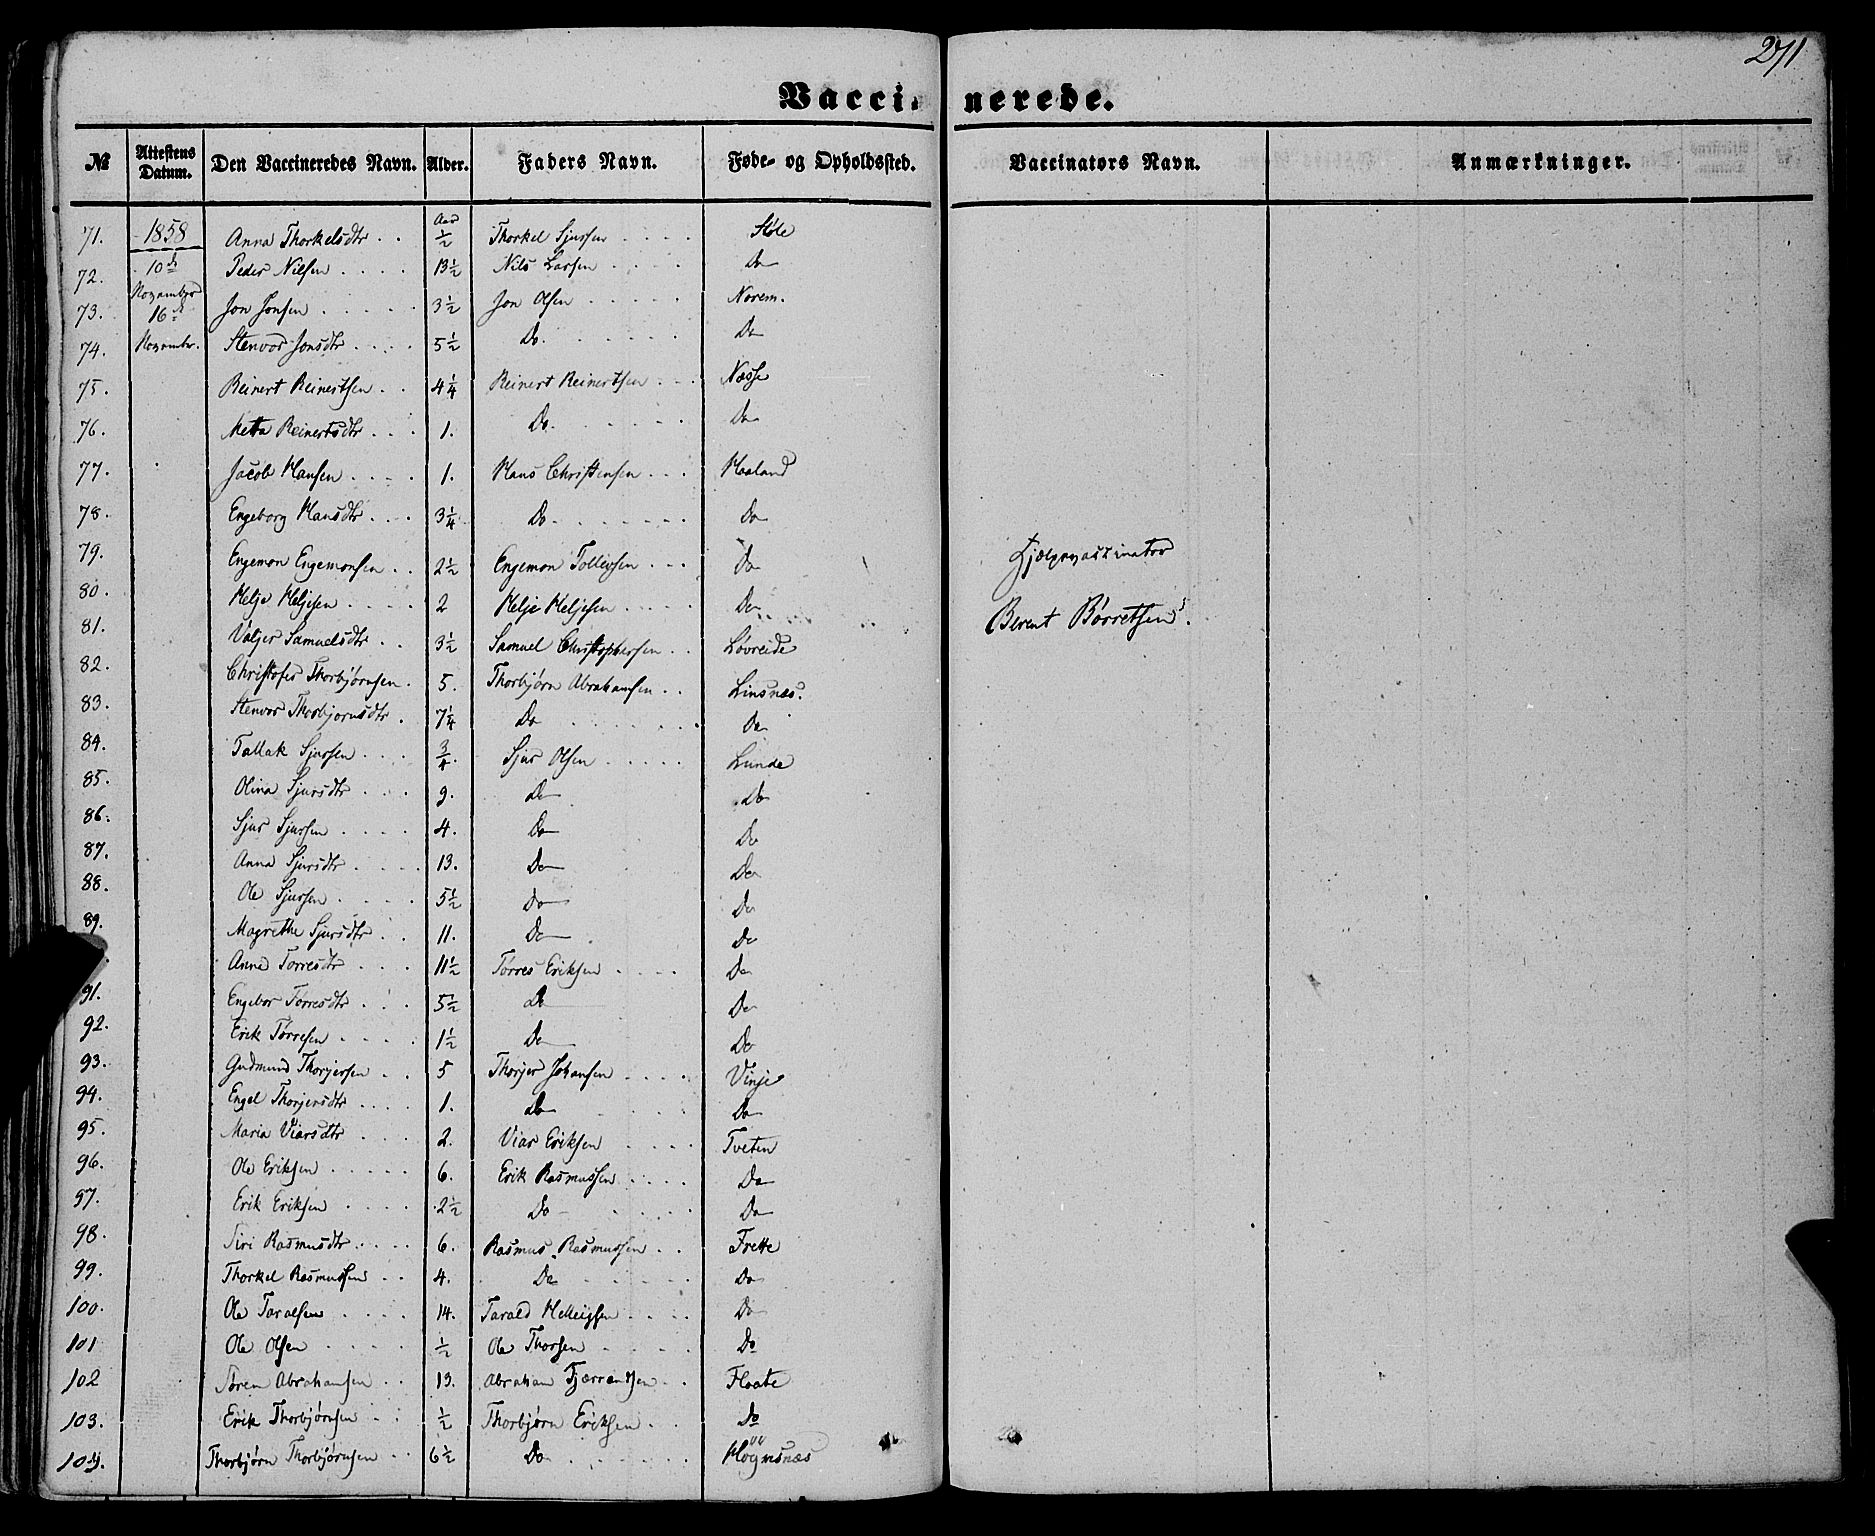 271
Vaccinerede.
№ Attestens Datum. Den Vaccineredes Navn. Alder. Faders Navn. Føde- og Opholdssted. Vaccinators Navn. Anmærkninger.
71. 1858 Anna Thorkelsdtr . . Aar ½ Thorkel Sjursen . . . . Støle
72. 10de Peder Nilsen . . . . 13½ Nils Larsen . . . . Do
73. November 16de Jon Jonsen . . . . . 3½ Jon Olsen . . . . . Norem.
74. Novembr. Stenvor Jonsdtr . . . . 5½ Do. . . . . . . Do
75. Reinert Reinertsen . . 4¼ Reinert Reinertsen . . . Næsse
76. Metta Reinertsdtr . . . 1. Do. . . . . . Do
77. Jacob Hansen . . . . 1. Hans Christensen . . . Haaland
78. Engeborg Hansdtr . . . 3¼ Do. . . . . . . Do
79. Engemon Engemonsen . . 2½ Engemon Tollevsen . . . Do Hjælpevaccinator
80. Helje Heljesen . . . . 2 Helje Heljesen . . . . Do Berent Børretsen.
81. Valger Samuelsdtr . . 3½ Samuel Christophersen . . Løvreide
82. Christofer Thorbjørnsen . 5. Thorbjørn Abrahamsen . . Linsnæs.
83. Stenvor Thorbjornsdtr . 7¼ Do . . . . . . Do
84. Tallak Sjursen . . . ¾. Sjur Olsen . . . . . Lunde
85. Olina Sjursdtr . . . 9. Do Do
86. Sjur Sjursen . . . . 4. Do Do
87. Anna Sjursdtr . . . . 13. Do Do
88. Ole Sjursen . . . . . 5½ Do Do
89. Magrethe Sjursdtr . . 11. Do Do
Anna Torresdtr . . . . 11½ Tørres Eriksen . . . . Do
91. Engebor Tørresdtr . . . 5½ Do Do
92. Erik Tørresen . . . . 1½ Do Do
93. Gudmund Thorjersen . . 5 Thorjer Johansen . . . . Vinje
94. Engel Thorjersdtr . . . . 1. Do . . . . Do
95. Maria Viarsdtr . . . . 2. Viar Eriksen . . . . Tveten
96. Ole Eriksen . . . . . 6. Erik Rasmussen . . . . Do
97. Erik Eriksen . . . . 2½ Do . . . . Do
98. Siri Rasmusdtr . . . . 6. Rasmus Rasmussen . . Frette
99. Thorkel Rasmussen . . 4. Do . . . . . Do
100. Ole Taralsen . . . . 14. Tarald Helleigsen . . . . Do
101 Ole Olsen . . . . ½ Ole Thorsen . . . . Do
102 Søren Abrahamsen . . 13. Abraham . . Floate
103. Erik Thorbjørnsen . . ½ Thorbjørn Eriksen . . Do
104. Thorbjørn Thorbjørnsen . . 6½ Do . . . . . . Høgnsnæs